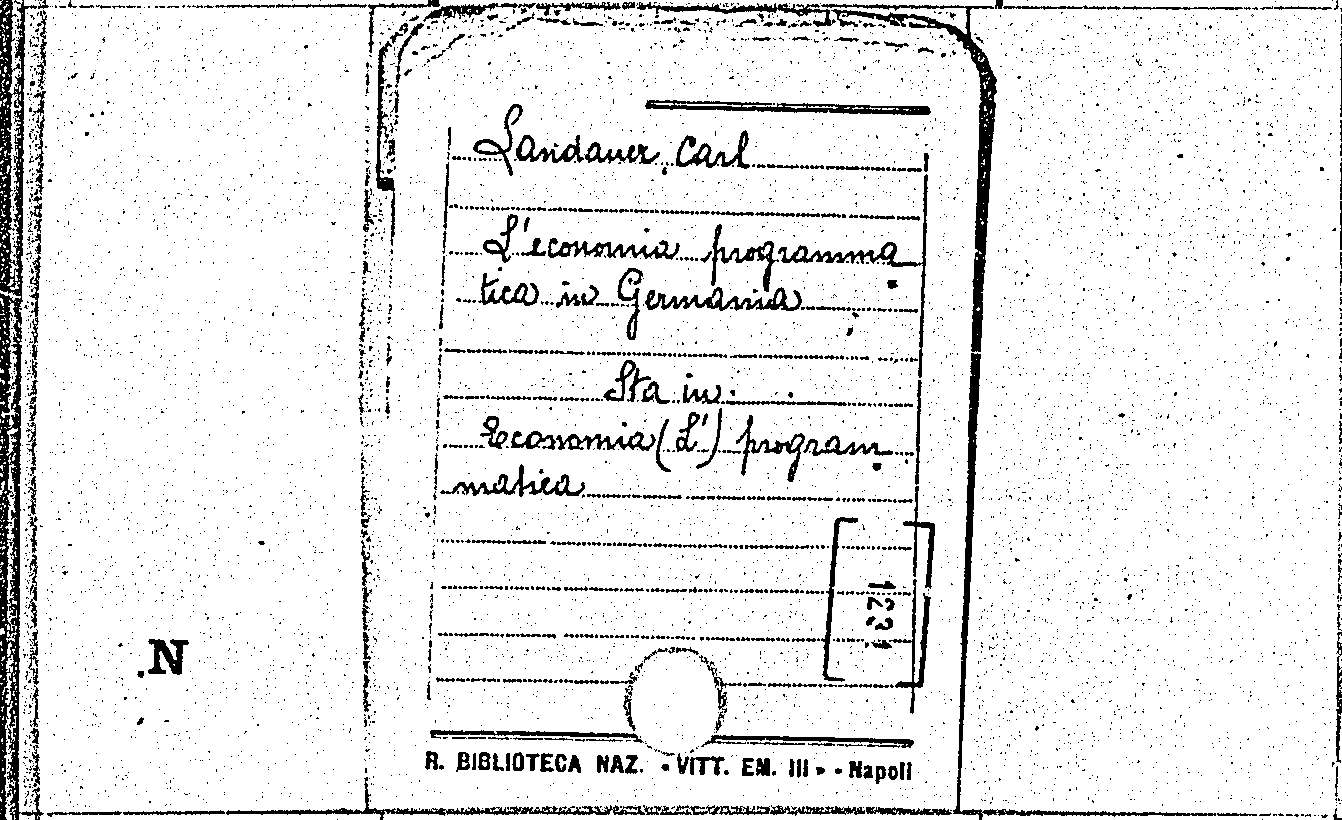 Landauer, Carl
L'economia programma
tica in Germania
Sta in
Economia (L') program
matica
1231
N
R. BIBLIOTECA NAZ. «VITT. EM. III» - Napoli